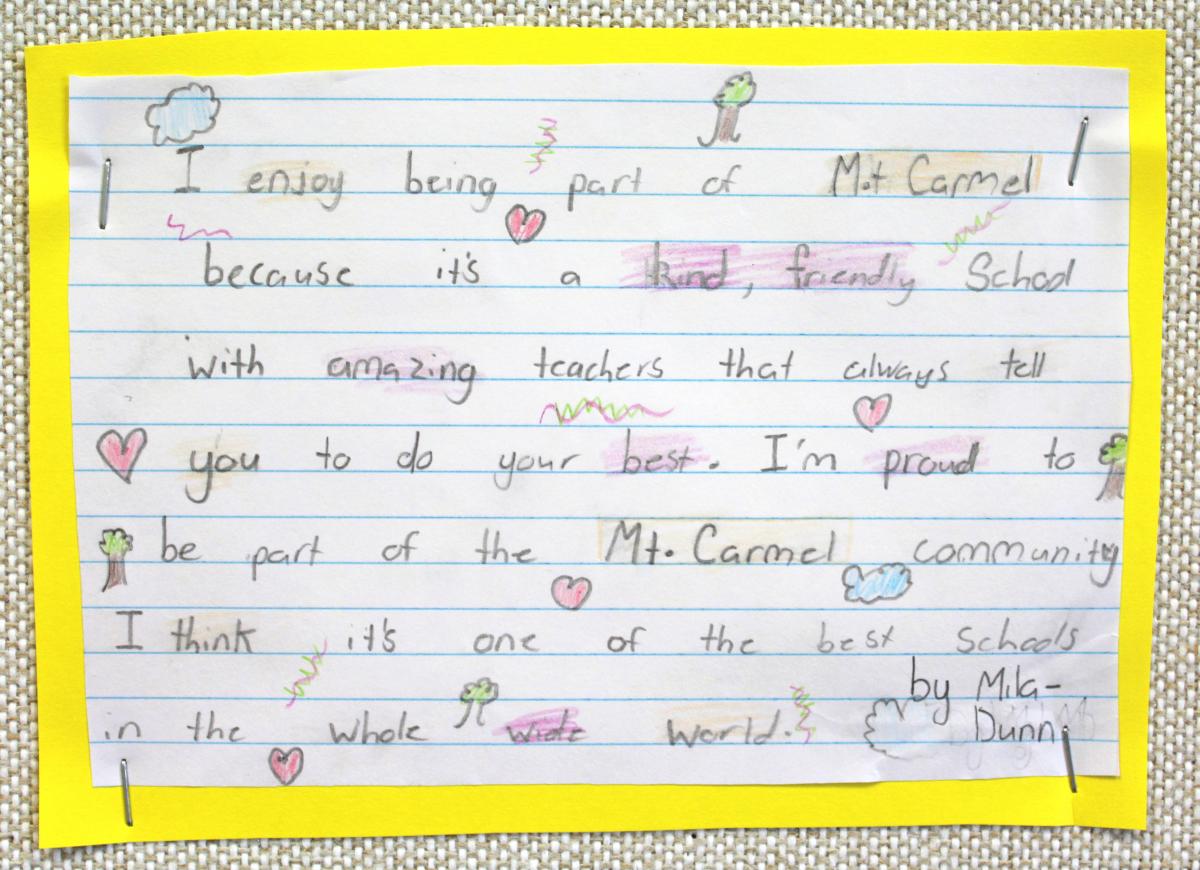 I enjoy being part of Mt Carmel
because it's a kind, friendly School
with amazing teachers that always tell
you to do your best. I'm proud to
be part of the Mt. Carmel community
I think it's one of the best Schools
in the whole wide world.
by Mila-
Dunn